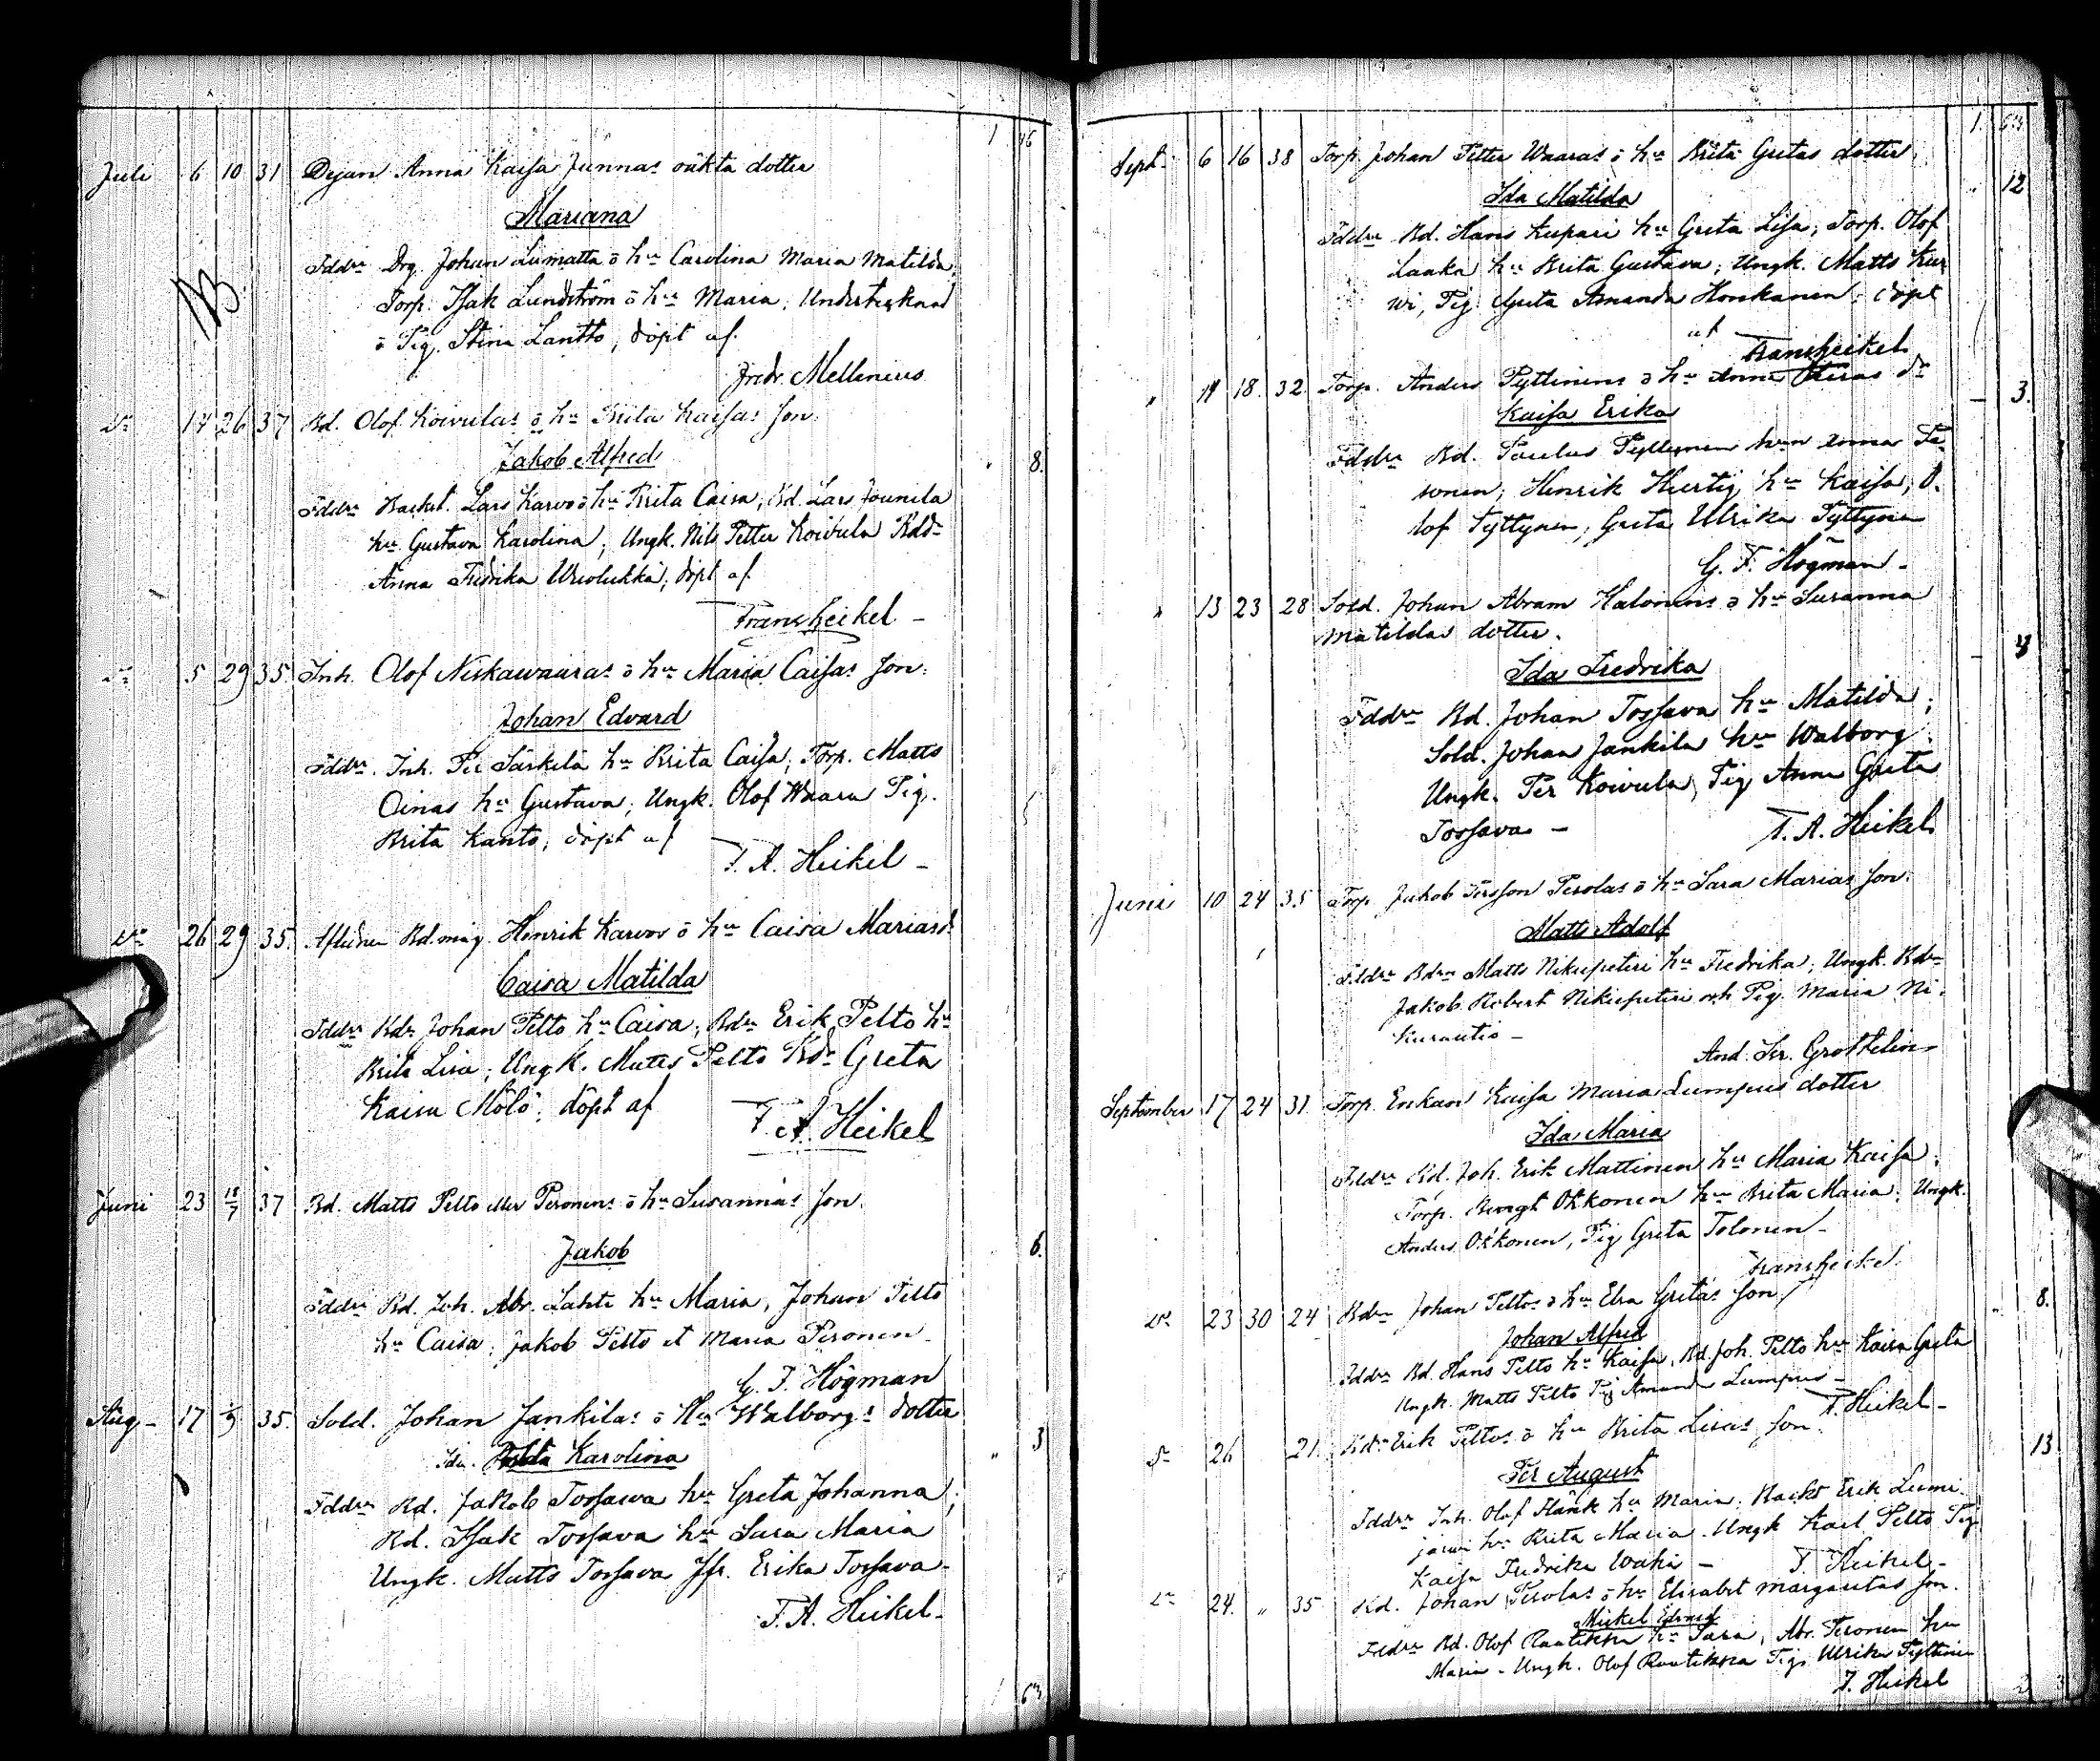 1 46
Juli 6 10 31 Dejan Anna Kaisa Junnas oäkta dotter
Mariana
Fddr Drg. Johan Lumatta o hu Carolina Maria Matilda,
Torp. Isak Lundström o hu Maria, Undertecknad
NB
o Pig. Stina Lantto, döpt af.
Fredr. Mellenius
Do 17 26 37 Bd. Olof Koivulas o hu Brita Kaisas Son.
Jakob Alfred
8.
Fddr Backst. Lars Karvo o hu Brita Caisa, Bd. Lars Jounila
hu Gustava Karolina, Ungk. Nils Petter Koivula Bdd
Anna Fredrika, döpt af
Frans Heikel
Do 5 29 35 Inh. Olof Niskawaaras o hu Maria Caisas Son.
Johan Edvard
Fddr. Inh. Per Särkelä hu Brita Caisa, Torp. Matts
Oinas hu Gustava, Ungk. Olof Waara Pig.
Brita Kanto, döpt af
F. A. Heikel
Do 26 29 35. Aflidne Bd.måg Henrik Karvos o hu Caisa Marias d.
Caisa Matilda
Fddr Bdr Johan Pelto hu Caisa, Bdr Erik Pelto hu
Brita Lisa, Ungk. Matts Pelto Bdr Greta
Kaisa Mölö. döpt af
F. A. Heikel
Juni 23 18/7 37 Bd. Matts Pelto eller Peronens o hu Susannas Son.
Jakob
6.
Fddr Bd. Joh. Abr. Lahti hu Maria, Johan Pelto
hu Caisa, Jakob Pelto et Maria Peronen
G. F. Högman
Aug 17 35. Sold. Johan Jankilas o Hu Walborgs dotter
Ida Karolina
3
Fddr Bd. Jakob Tossawa hu Greta Johanna,
Bd. Isak Tossava hu Sara Maria
Ungk. Matts Tossava Jfr. Erika Tossava
F. A. Heikel
63
1. 63
Sept. 6 16 38 Torp. Johan Petter Waaras o hu Brita Gretas dotter.
Ida Matilda
12
Fddr Bd. Hans Kupari hu Greta Lisa, Torp. Olof
Laaka hu Brita Gustava, Ungk. Matts Kur
wi, Pig. Greta Amanda Honkanen, döpt
af
Frans Heikel
11 18. 32. Torp. Anders Pyttinens o hu Anna dr
Kaisa Erika
3.
Fddr Bd. Paulus Pyttynen hun Anna Pe
ronen, Henrik Hurtig hu Kaisa, O.
lof Pyttynen, Greta Ulrika Pyttynen
G. F. Högman
13 23 28 Sold. Johan Abram Halonens o hu Susanna
Matildas dotter.
Ida Fredrika
Fddr Bd. Johan Tossava hu Matilda,
Sold. Johan Jankila hu Walborg
Ungk. Per Koivula, Pig Anna Greta
Tossava
F. A. Heikel
Juni 10 24 35 Torp Jakob Persson Perolas o hu Sara Marias Son.
Matts Adolf
Fddr Bdr Matts Nikupeteri hu Fredrika, Ungk. Bdr
Jakob Robert Nikupeteri och Pig. Maria Ni
kurautio
And. Ser. Grotelin
September 17 24 31. Torp. Enkan Kaisa Maria Lumpus dotter
Ida Maria
Fddr Bd. Joh. Erik Mattinen hu Maria Kaisa,
Torp. Bengt Okkonen hu Brita Maria, Ungk.
Anders Okkonen, Pig Greta Tolonen
Frans Heikel.
Do 23 30 24 Bdr Johan Peltos o hu Elsa Gretas Son
Johan Alfred
8.
Fddr Bd. Hans Pelto hu Kaisa, Bd. Joh. Pelto hu Kaisa Greta
Ungk. Matts Pelto Pig Amanda Lumpus
F. Heikel
Do 26 21. Bdr Erik Peltos o hu Brita Lisas Son.
Per August
13
Fddr Inh. Olof Hank hu Maria, Backst Erik Lumi
järwi hu Brita Maria. Ungk Karl Pelto Pig
Kaisa Fredrika
F. Heikel
Do 24. " 35 Bd. Johan Perolas o hu Elisabet Margaretas Son.
Mickel Edvard
Fddr Bd. Olof Rautikka hu Sara, Abr. Peronen hu
Maria. Ungk. Olof Rautikka Pig. Ulrika Pyttinen
F. Heikel